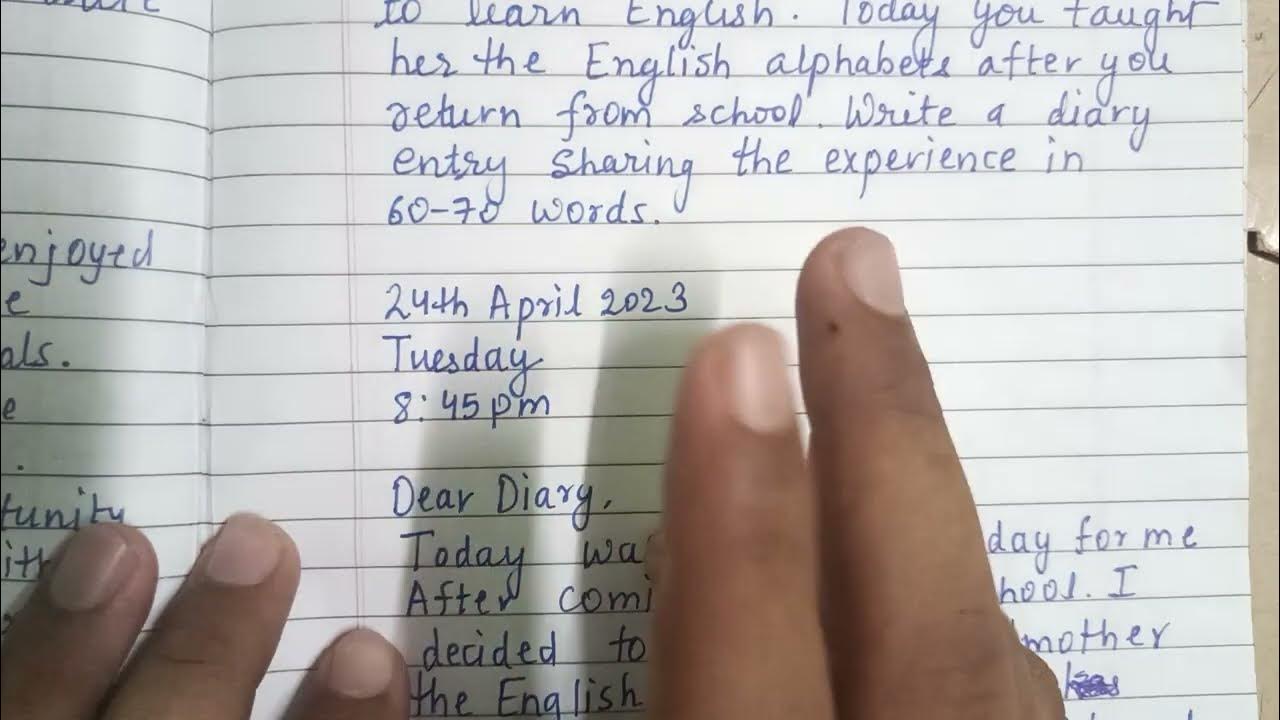 to learn English. Today you taught
her the English alphabets after you
return from school. Write a diary
entry sharing the experience in
60-70 words.
enjoyed
24th April 2023
e
Tuesday
als.
8:45 pm
e
Dear Diary,
tunity
Today wa day for me
ith
After comi hool. I
decided to mother
the English